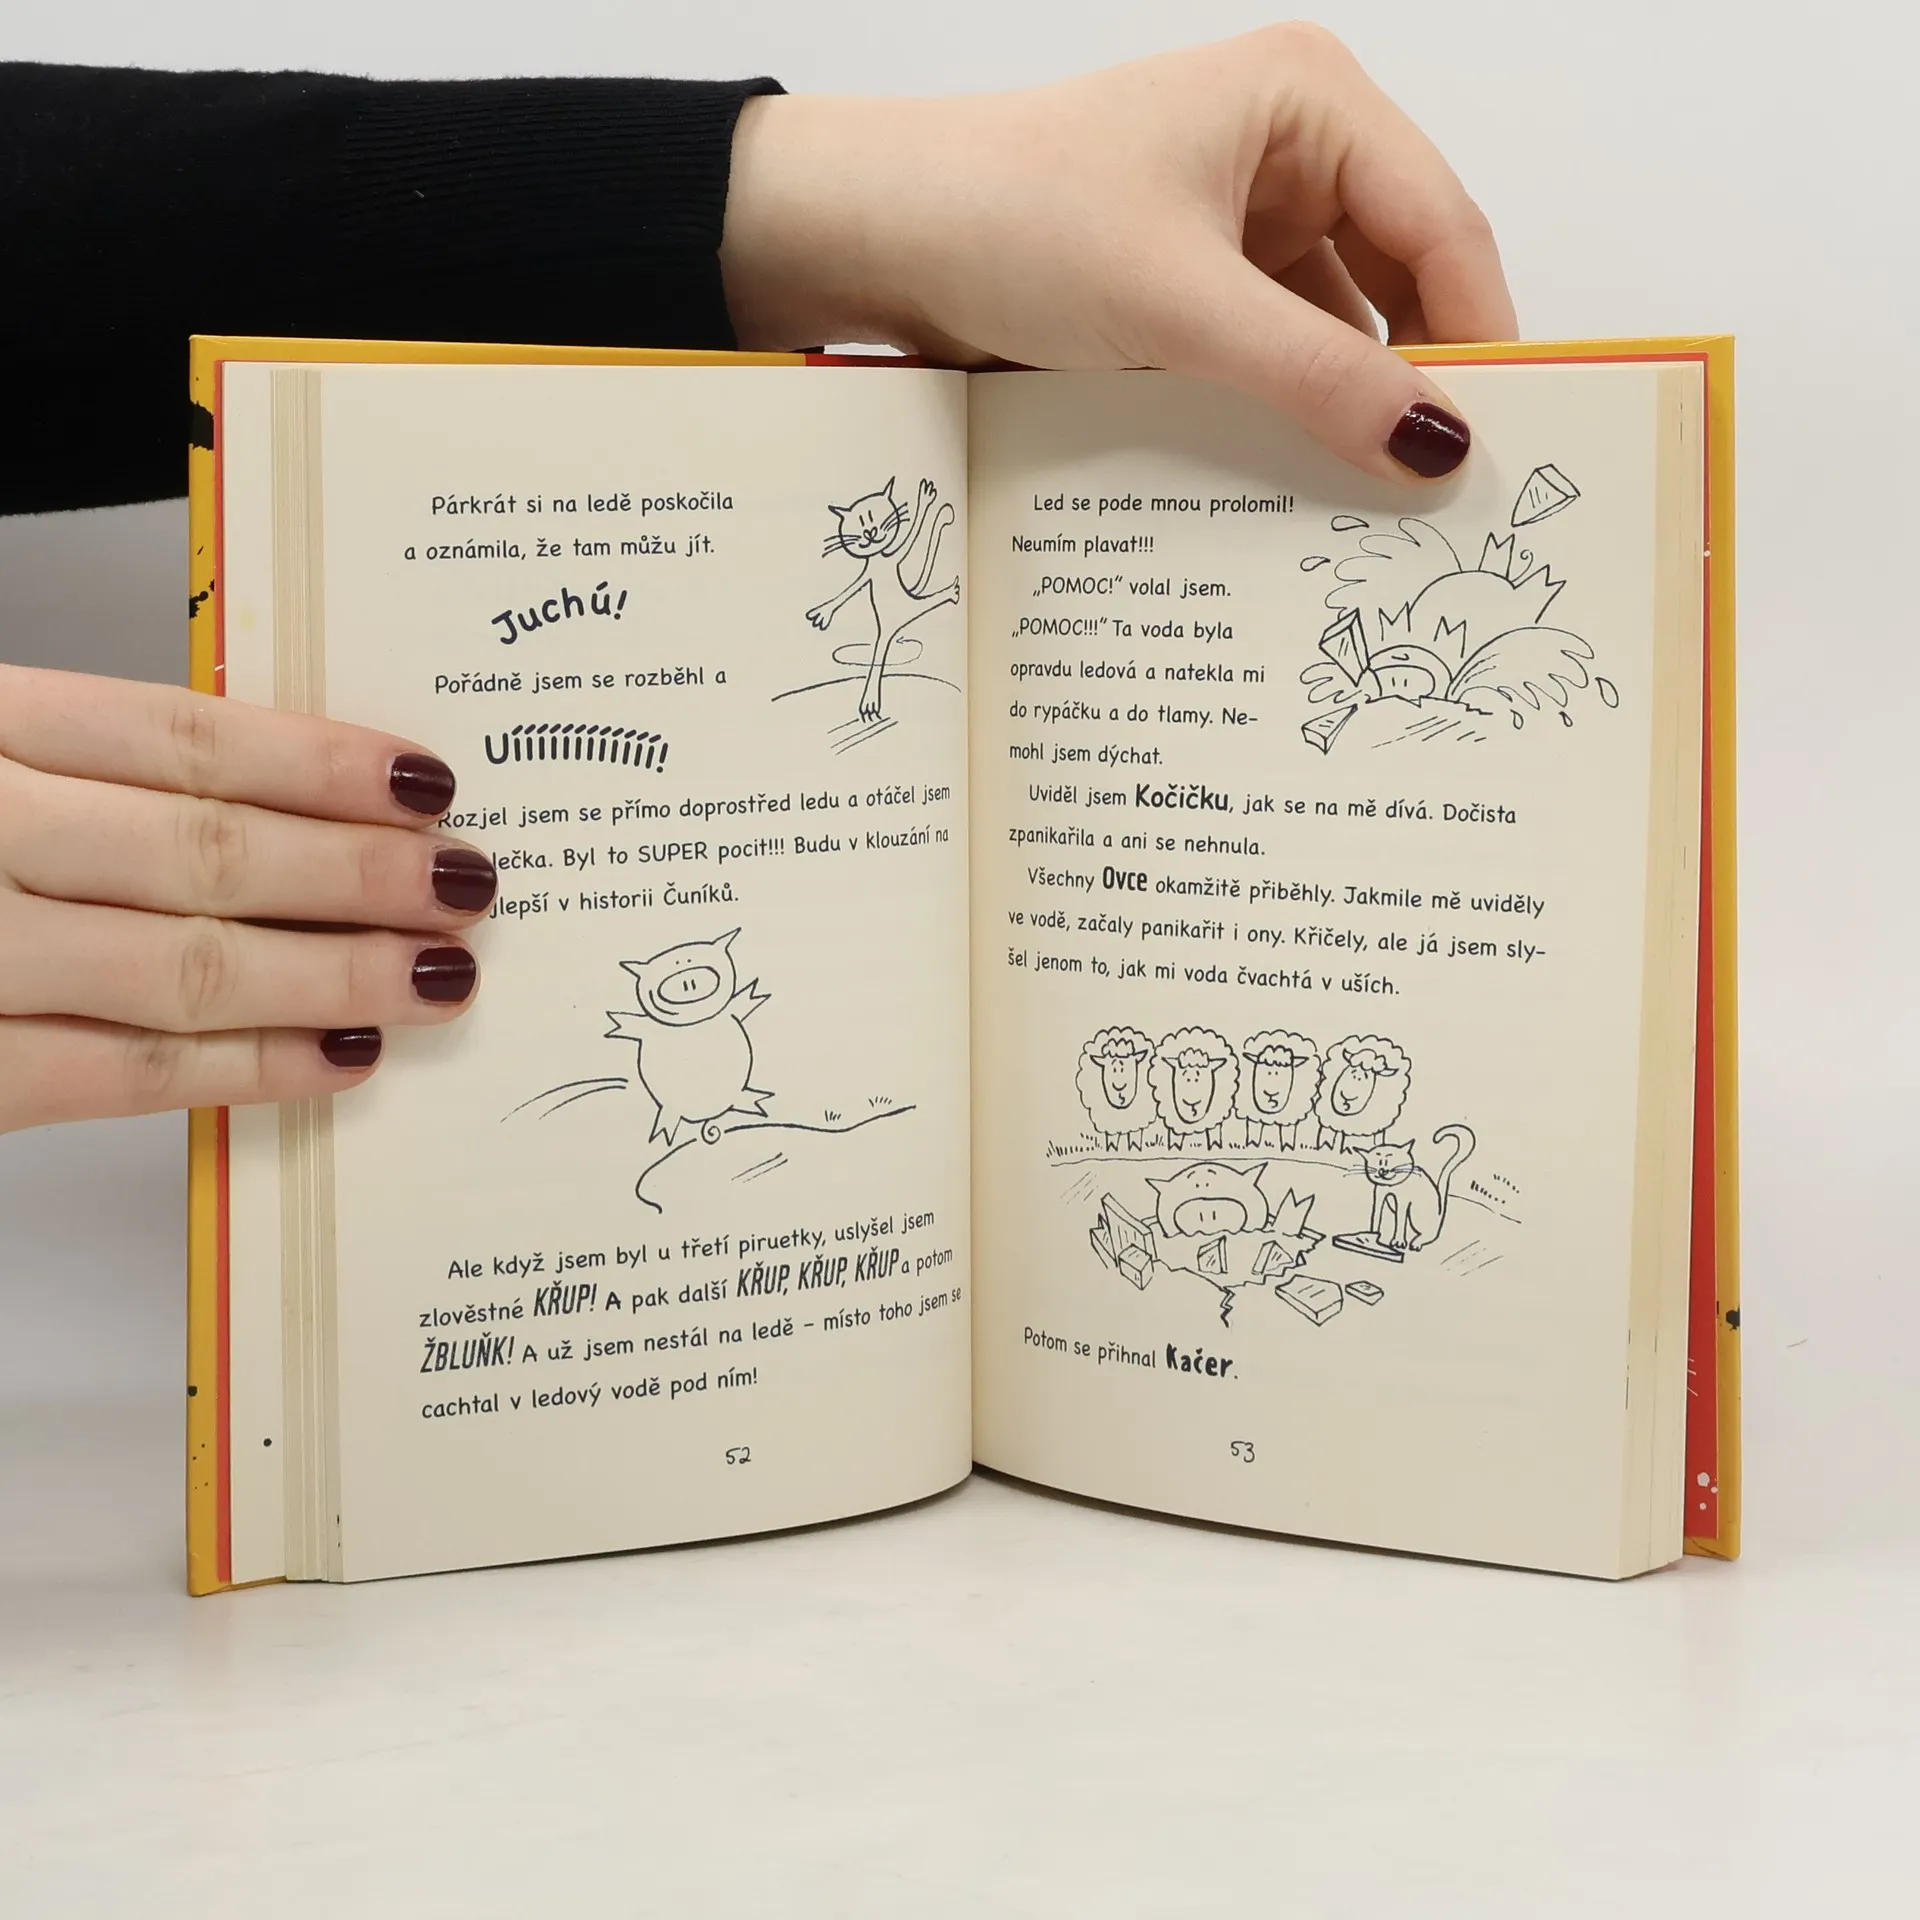 Párkrát si na ledě poskočila
a oznámila, že tam můžu jít.
Juchú!
Pořádně jsem se rozběhl a
Uíííííííííííí!
Rozjel jsem se přímo doprostřed ledu a otáčel jsem
lečka. Byl to SUPER pocit!!! Budu v klouzání na
jlepší v historii Čuníků.
Ale když jsem byl u třetí piruetky, uslyšel jsem
zlověstné KŘUP! A pak další KŘUP, KŘUP, KŘUP a potom
ŽBLUŇK! A už jsem nestál na ledě – místo toho jsem se
cachtal v ledový vodě pod ním!
52
Led se pode mnou prolomil!
Neumím plavat!!!
„POMOC!“ volal jsem.
„POMOC!!!“ Ta voda byla
opravdu ledová a natekla mi
do rypáčku a do tlamy. Ne-
mohl jsem dýchat.
Uviděl jsem Kočičku, jak se na mě dívá. Dočista
zpanikařila a ani se nehnula.
Všechny Ovce okamžitě přiběhly. Jakmile mě uviděly
ve vodě, začaly panikařit i ony. Křičely, ale já jsem sly-
šel jenom to, jak mi voda čvachtá v uších.
Potom se přihnal Kačer.
53